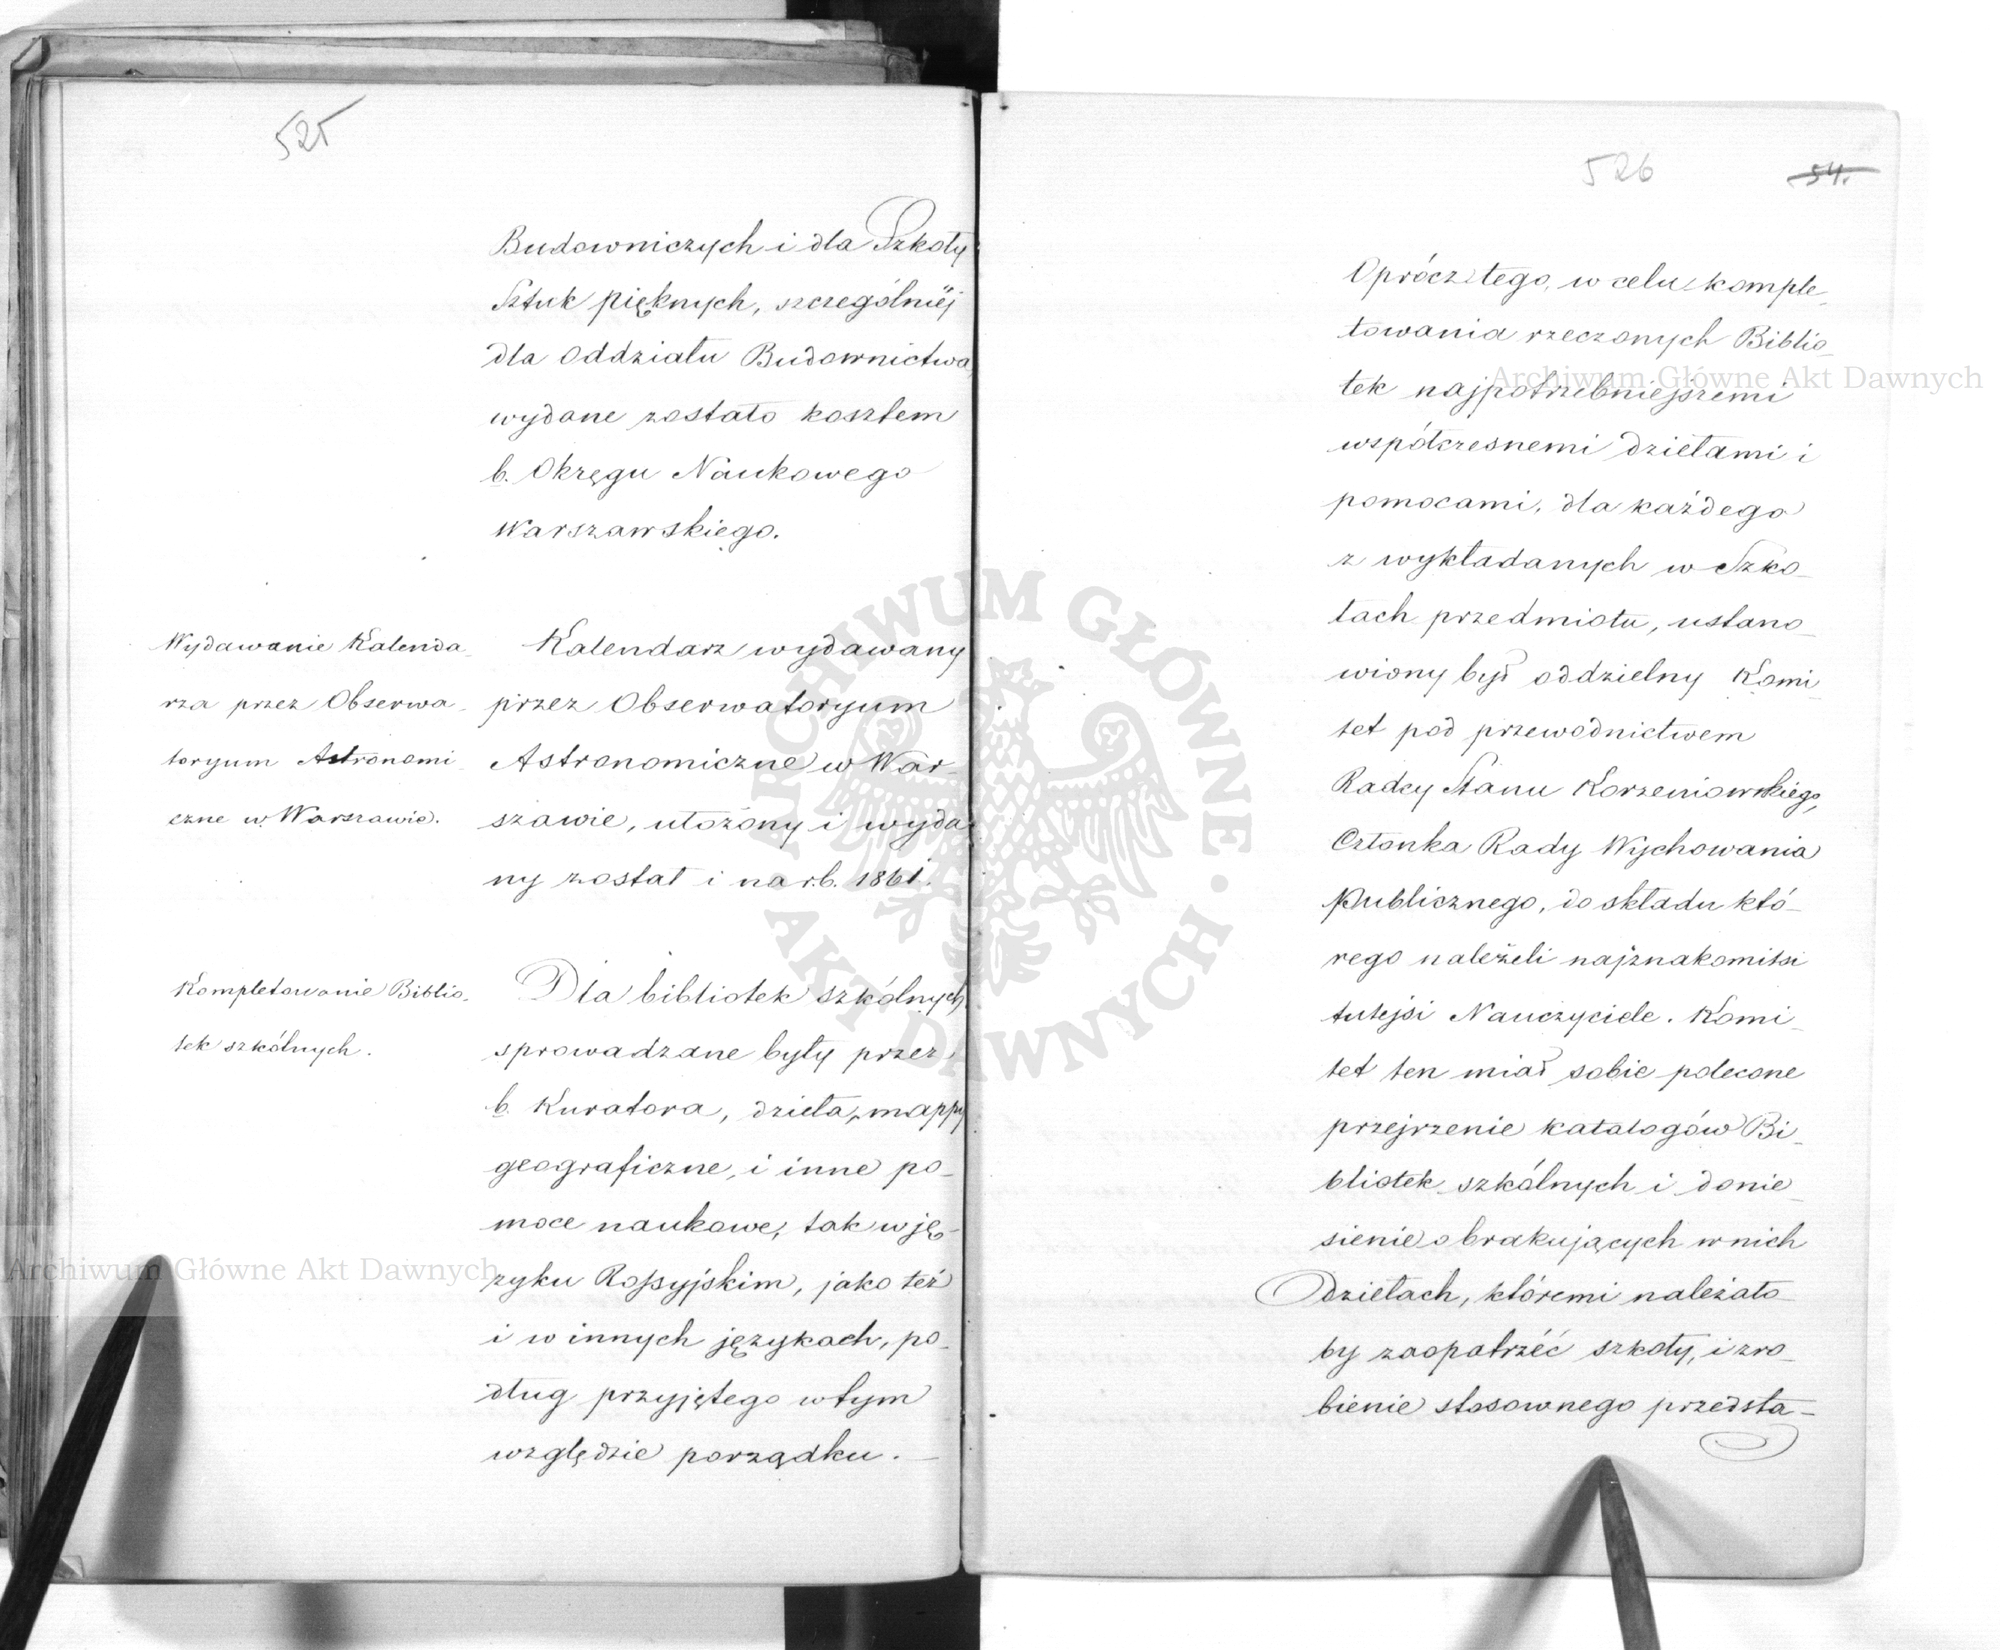 525
Budowniczych i dla Szkoły
Sztuk pięknych, szczególniéj
dla Oddziału Budownictwa,
wydane zostało kosztem
b. Okręgu Naukowego
Warszawskiego.
Wydawanie Kalenda-
rza przez Obserwa-
toryum Astronomi-
czne w Warszawie.
Kalendarz wydawany
przez Obserwatoryum
Astronomiczne w War-
szawie, ułożony i wyda-
ny został i na r.b. 1861.
Kompletowanie Biblio-
tek szkólnych.
Dla bibliotek szkólnych
sprowadzane były przez
b. Kuratora, dzieła, mappy
geograficzne, i inne po-
moce naukowe, tak w ję-
zyku Rossyjskim, jako też
i w innych językach, po-
dług przyjętego w tym
względzie porządku. —
526
54.
Oprócz tego, w celu komple-
towania rzeczonych Biblio-
tek najpotrzebniejszemi
współczesnemi dziełami i
pomocami, dla każdego
z wykładanych w Szko-
łach przedmiotu, ustano-
wiony był oddzielny Komi-
tet pod przewodnictwem
Radcy Stanu Korzeniowskiego,
Członka Rady Wychowania
Publicznego, do składu któ-
rego należeli najznakomitsi
tutejsi Nauczyciele. Komi-
tet ten miał sobie polecone
przejrzenie katalogów Bi-
bliotek szkólnych i donie-
sienie o brakujących w nich
dziełach, któremi należało
by zaopatrzéć szkoły, i zro-
bienie stosownego przedsta-
Archiwum Główne Akt Dawnych
Archiwum Główne Akt Dawnych
ARCHIWUM GŁÓWNE AKT DAWNYCH